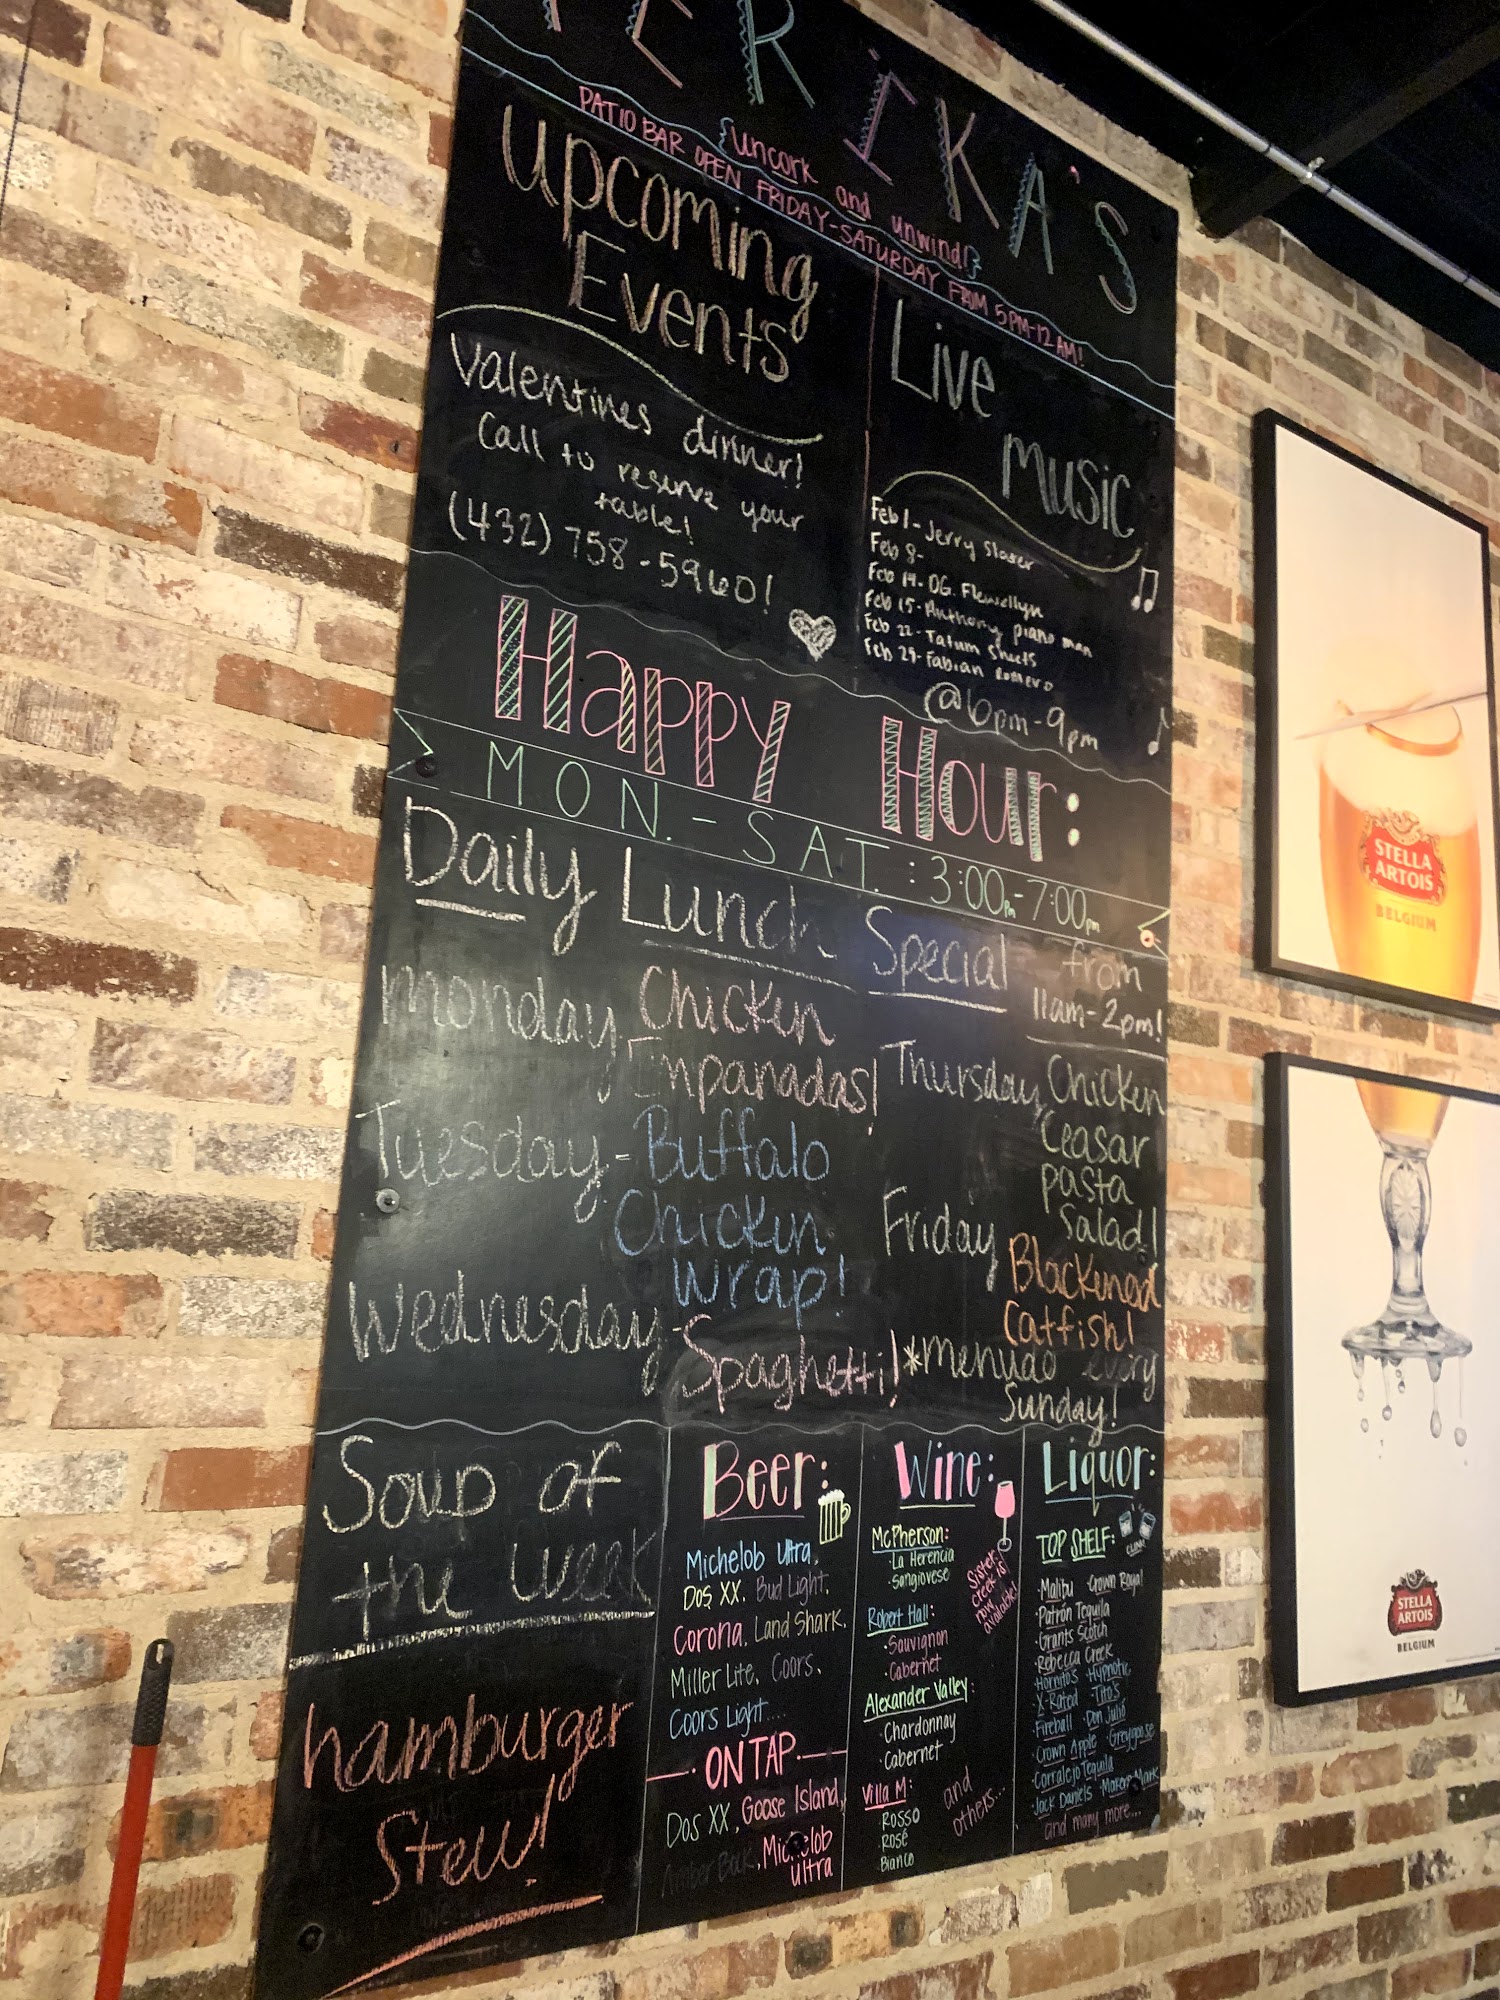 ER IKA'S
{Uncork and unwind!}
PATIO BAR OPEN FRIDAY-SATURDAY FROM 5PM-12AM!
Upcoming
Events
Valentines dinner!
Call to reserve your
table!
(432) 758-5960!
Live
Music
Feb 1 - Jerry Slaser
Feb 8-
Feb 14- OG. Flewellyn
Feb 15- Anthony piano man
Feb 22- Tatum Sheets
Feb 29- Fabian Romero
@6pm-9pm
Happy Hour:
MON.-SAT.: 3:00pm-7:00pm
Daily Lunch Special from
11am-2pm!
Monday Chicken
Empanadas!
Tuesday- Buffalo
Chicken
Wrap!
Wednesday- Spaghetti!
Thursday Chicken
Ceasar
pasta
Salad!
Friday Blackened
Catfish!
*menudo every
Sunday!
Soup of
the week
hamburger
Stew!
Beer:
Michelob Ultra,
Dos XX, Bud Light,
Corona, Land Shark,
Miller Lite, Coors,
Coors Light....
ON TAP
Dos XX, Goose Island,
Amber Bock, Michelob
Ultra
Wine:
McPherson:
·La Herencia
·Sangiovese
Sister
creek is
now
available!
Robert Hall:
·Sauvignon
·Cabernet
Alexander Valley:
·Chardonnay
·Cabernet
Villa M:
·Rosso
·Rosé
·Bianco
and
others...
Liquor:
TOP SHELF:
CLINK
·Malibu ·Crown Royal
·Patrón Tequila
·Grants Scotch
·Rebecca Creek
·Hornitos ·Hypnotic
·X-Rated ·Tito's
·Fireball ·Don Julió
·Crown Apple ·Greygoose
·Corralejo Tequila
·Jack Daniels ·Makers Mark
and many more...
STELLA
ARTOIS
BELGIUM
STELLA
ARTOIS
BELGIUM